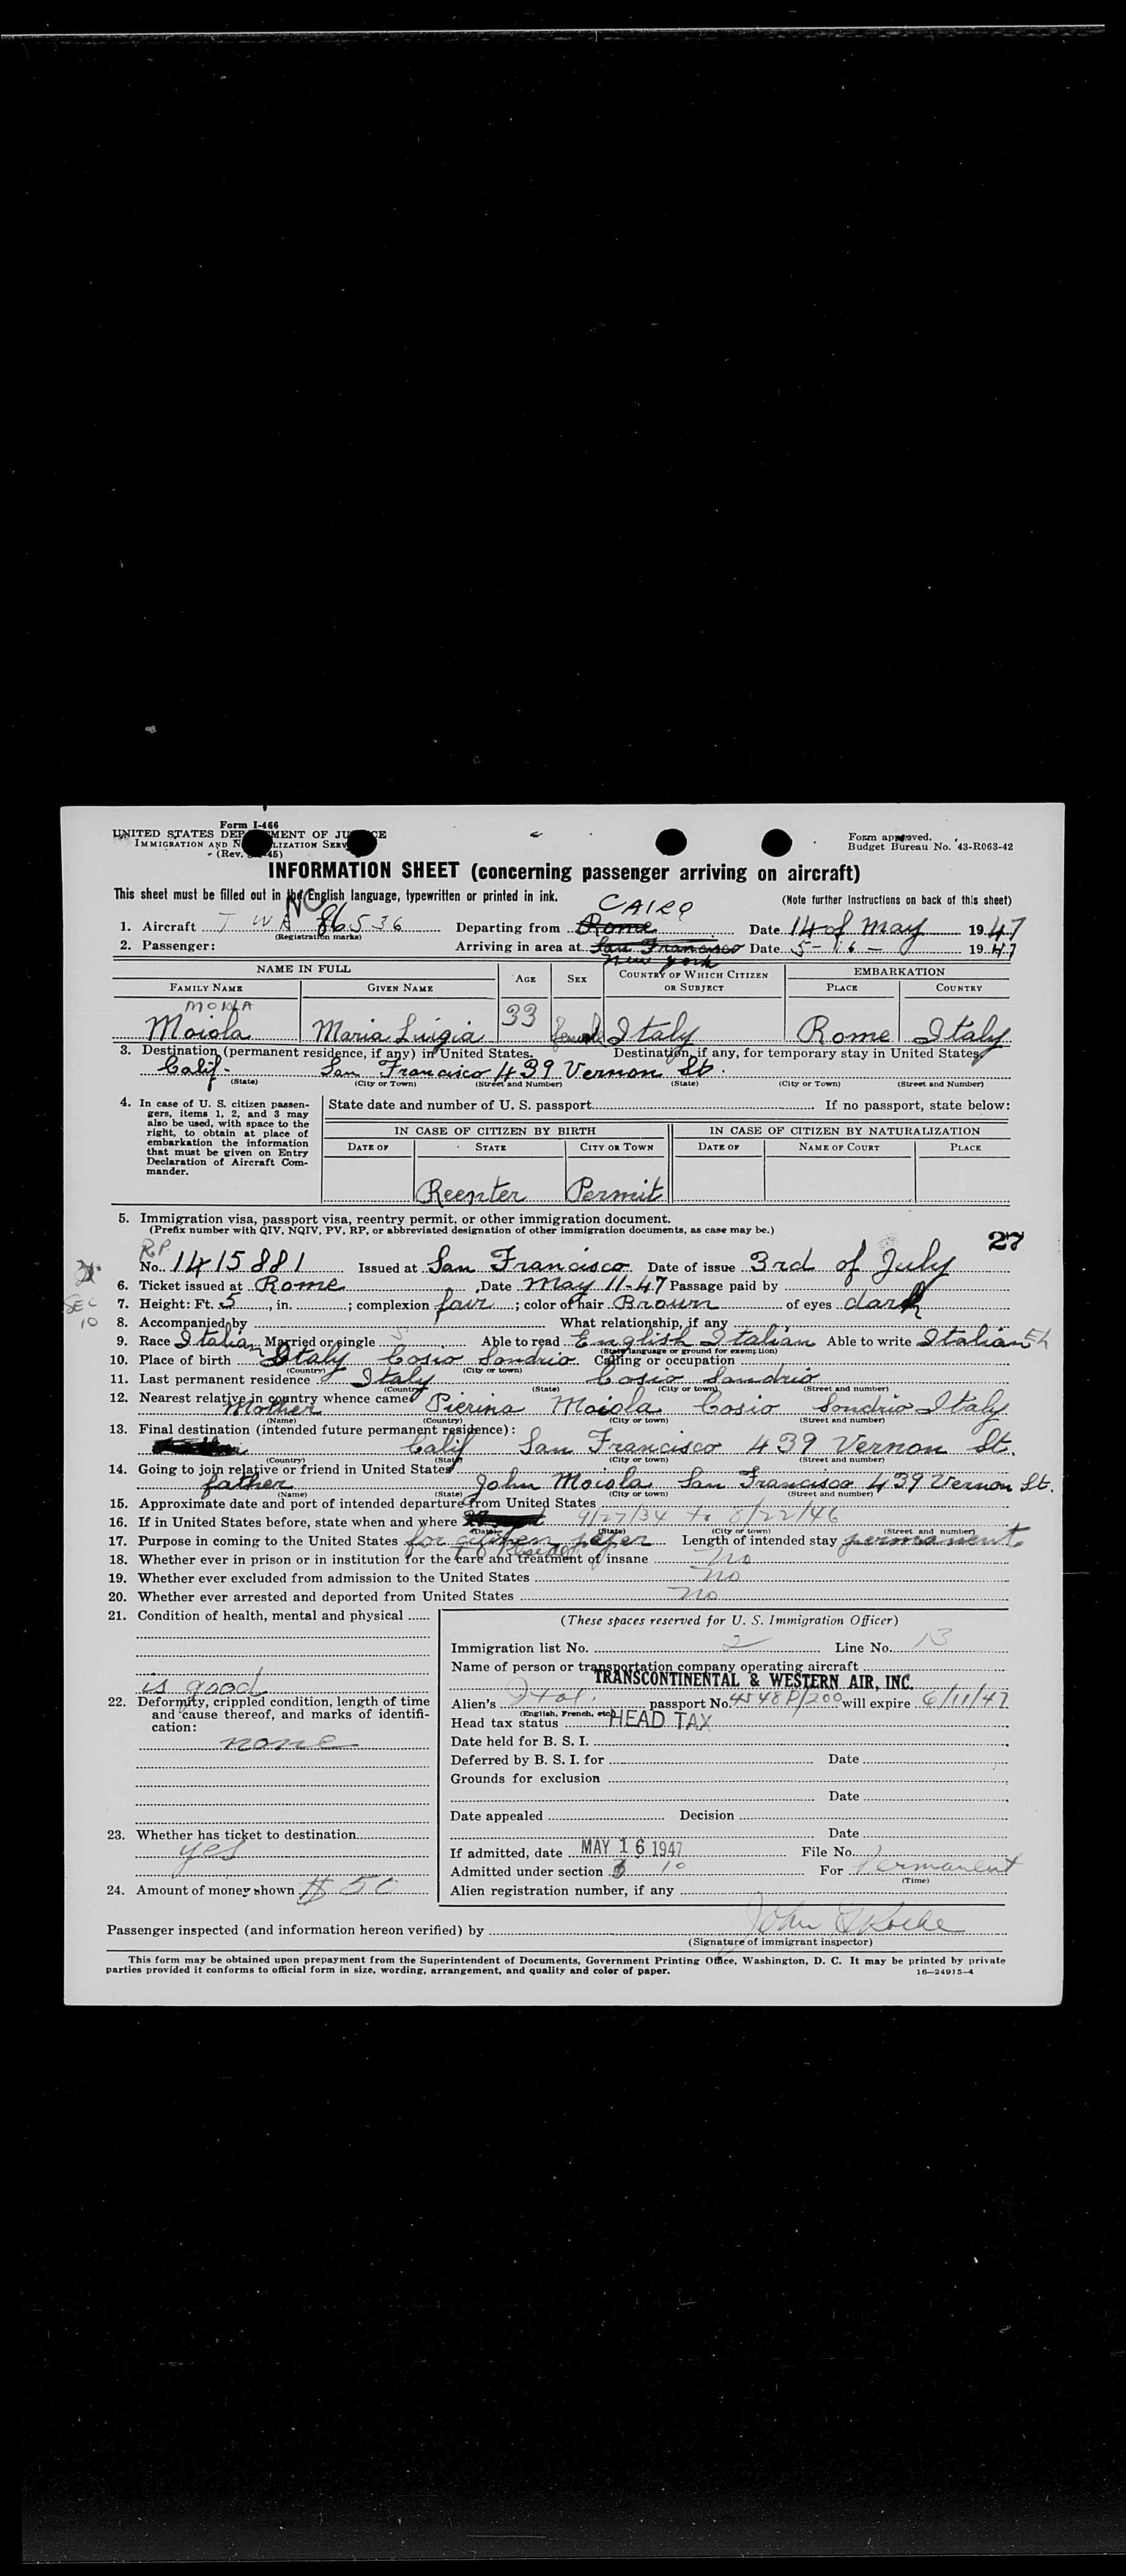 Form I-466
UNITED STATES DEPARTMENT OF JUSTICE
IMMIGRATION AND NATURALIZATION SERVICE
(Rev. 45)
Form approved.
Budget Bureau No. 43-R063-42
INFORMATION SHEET (concerning passenger arriving on aircraft)
This sheet must be filled out in the English language, typewritten or printed in ink.
(Note further instructions on back of this sheet)
NC CAIRO
1. Aircraft TWA 86536 Departing from Rome Date 14 of May 1947
(Registration marks)
2. Passenger: Arriving in area at San Francisco Date 5-16- 1947
New York
NAME IN FULL AGE SEX COUNTRY OF WHICH CITIZEN OR SUBJECT EMBARKATION
FAMILY NAME GIVEN NAME PLACE COUNTRY
MOIOLA
Moiola Maria Luigia 33 female Italy Rome Italy
3. Destination (permanent residence, if any) in United States. Destination, if any, for temporary stay in United States
Calif- San Francisco 439 Vernon St.
(State) (City or Town) (Street and Number) (State) (City or Town) (Street and Number)
4. In case of U. S. citizen passengers, items 1, 2, and 3 may also be used, with space to the right, to obtain at place of embarkation the information that must be given on Entry Declaration of Aircraft Commander.
State date and number of U. S. passport If no passport, state below:
IN CASE OF CITIZEN BY BIRTH IN CASE OF CITIZEN BY NATURALIZATION
DATE OF STATE CITY OR TOWN DATE OF NAME OF COURT PLACE
Reenter Permit
5. Immigration visa, passport visa, reentry permit, or other immigration document.
(Prefix number with QIV, NQIV, PV, RP, or abbreviated designation of other immigration documents, as case may be.)
27
R.P.
No. 1415881 Issued at San Francisco Date of issue 3rd of July
6. Ticket issued at Rome Date May 11-47 Passage paid by
SEC 10
7. Height: Ft. 5, in. ; complexion fair; color of hair Brown of eyes dark
8. Accompanied by What relationship, if any
9. Race Italian Married or single S Able to read English Italian Able to write Italian Eh
(State language or ground for exemption)
10. Place of birth Italy Cosio Sondrio Calling or occupation
(Country) (City or town)
11. Last permanent residence Italy Cosio Sondrio
(Country) (State) (City or town) (Street and number)
12. Nearest relative in country whence came Mother Pierina Moiola Cosio Sondrio Italy
(Name) (Country) (City or town) (Street and number)
13. Final destination (intended future permanent residence):
Calif San Francisco 439 Vernon St.
(Country) (State) (City or town) (Street and number)
14. Going to join relative or friend in United States
father John Moiola San Francisco 439 Vernon St.
(Name) (State) (City or town) (Street and number)
15. Approximate date and port of intended departure from United States
16. If in United States before, state when and where 9/27/34 to 8/22/46
(Date) (State) (City or town) (Street and number)
17. Purpose in coming to the United States for citizen paper Length of intended stay permanent
to reside
18. Whether ever in prison or in institution for the care and treatment of insane no
19. Whether ever excluded from admission to the United States no
20. Whether ever arrested and deported from United States no
21. Condition of health, mental and physical
is good
22. Deformity, crippled condition, length of time and cause thereof, and marks of identification:
none
23. Whether has ticket to destination
yes
24. Amount of money shown $50
(These spaces reserved for U. S. Immigration Officer)
Immigration list No. 2 Line No. 13
Name of person or transportation company operating aircraft
TRANSCONTINENTAL & WESTERN AIR, INC.
Alien's Ital. passport No. 4548P/200 will expire 6/11/47
(English, French, etc.)
Head tax status HEAD TAX
Date held for B. S. I.
Deferred by B. S. I. for Date
Grounds for exclusion
Date
Date appealed Decision
Date
If admitted, date MAY 16 1947 File No.
Admitted under section 10 For Permanent
(Time)
Alien registration number, if any
Passenger inspected (and information hereon verified) by John
(Signature of immigrant inspector)
This form may be obtained upon prepayment from the Superintendent of Documents, Government Printing Office, Washington, D. C. It may be printed by private
parties provided it conforms to official form in size, wording, arrangement, and quality and color of paper.
16—24915-4